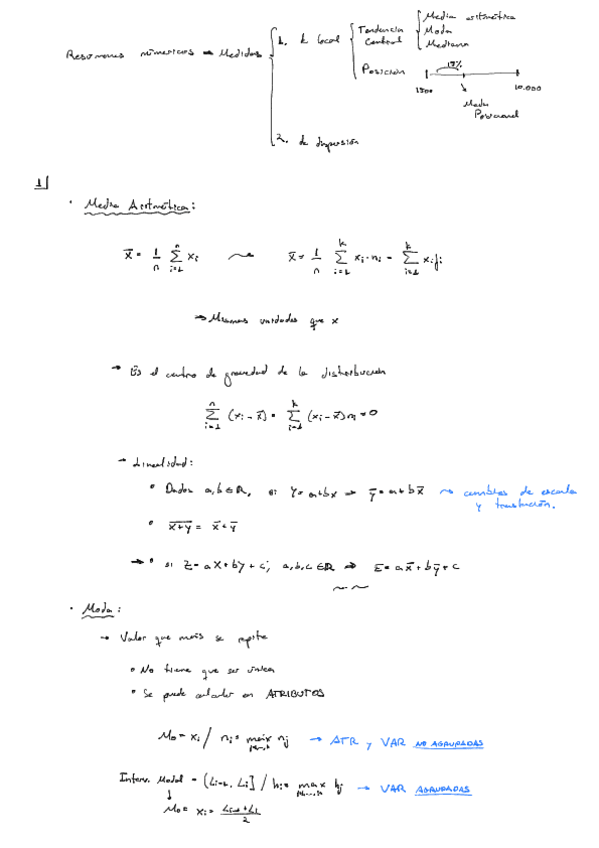 Resúmenes numéricos → Medidas
1. de local
Tendencia Central
Media aritmética
Moda
Mediana
Posición
15%
1500
10.000
Medida Posicional
2. de dispersión
1
• Media Aritmética:
x̄ = 1/n ∑_{i=1}^{n} xi ⁓ x̄ = 1/n ∑_{i=1}^{k} xi·ni = ∑_{i=1}^{k} xi fi
→ Mismas unidades que x
→ Es el centro de gravedad de la distribución
∑_{i=1}^{n} (xi - x̄) = ∑_{i=1}^{k} (xi - x̄) ni = 0
→ Linealidad:
• Dados a,b ∈ ℝ, si Y = a+bx ⇒ ȳ = a+b x̄ ⁓ cambios de escala
y traslación.
• \overline{x+y} = x̄ + ȳ
→ • si Z = aX + bY + c; a,b,c ∈ ℝ ⇒ z̄ = a x̄ + b ȳ + c
• Moda:
→ Valor que más se repite
• No tiene que ser única
• Se puede calcular en ATRIBUTOS
Mo = xi / ni = máx nj → ATR y VAR NO AGRUPADAS
Interv. Modal = (Li-1, Li] / hi = max hj → VAR AGRUPADAS
↓
Mo = xi = (Li-1 + Li)/2